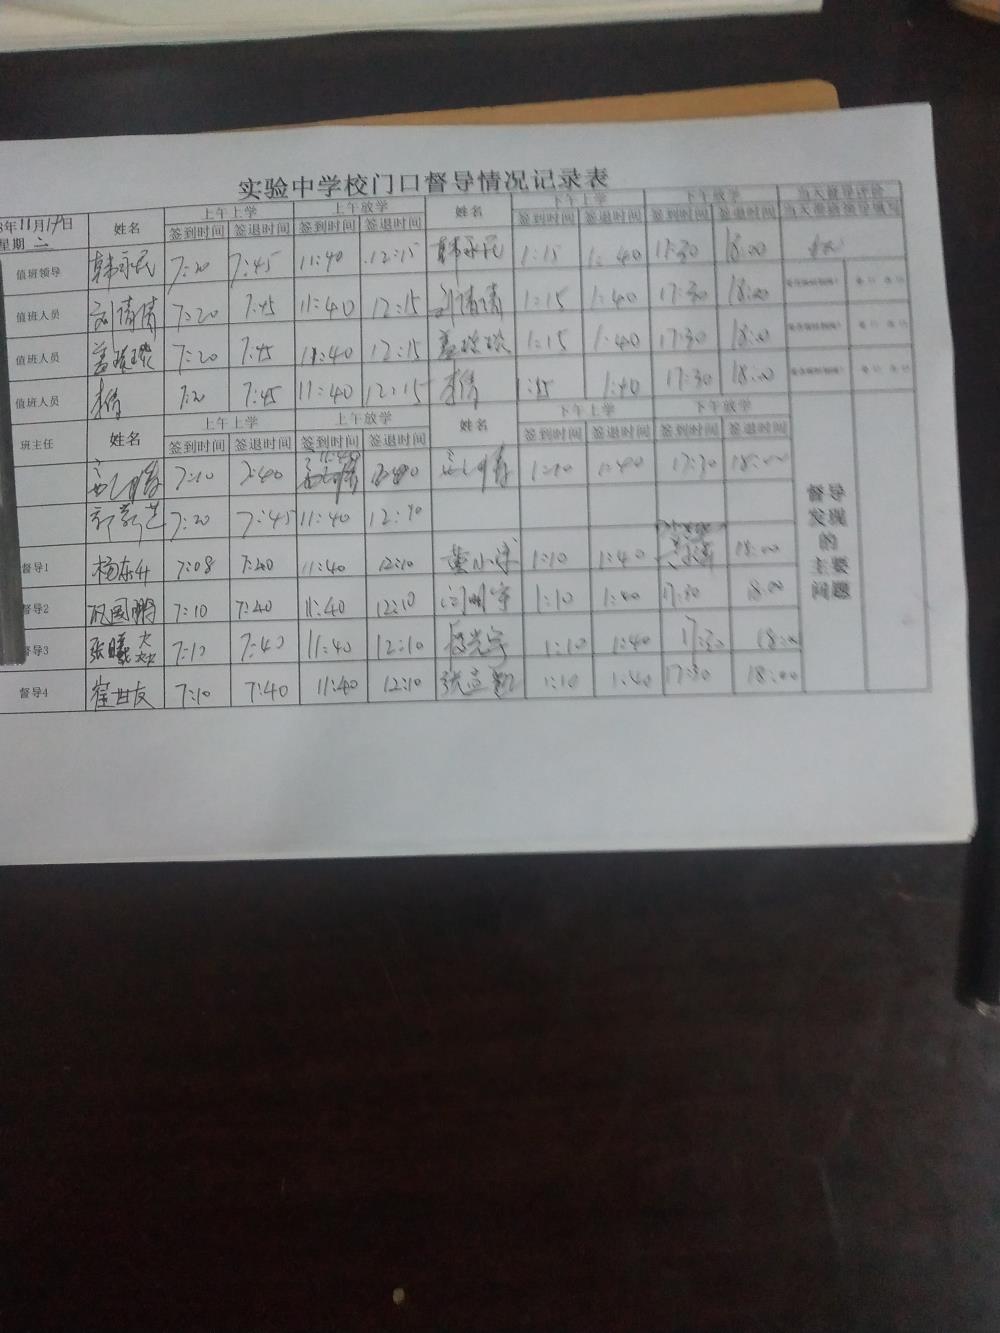 实验中学校门口督导情况记录表
年11月14日 姓名 上午上学 上午放学 姓名 下午上学 下午放学 当天督导评价
星期二 签到时间 签退时间 签到时间 签退时间 签到时间 签退时间 签到时间 签退时间 当天带班领导填写
值班领导 韩永民 7:20 7:45 11:40 12:15 韩永民 1:15 1:40 17:30 18:00
值班人员 刘倩倩 7:20 7:45 11:40 12:15 刘倩倩 1:15 1:40 17:30 18:00
值班人员 7:20 7:45 11:40 12:15 1:15 1:40 17:30 18:00
值班人员 李倩 7:20 7:45 11:40 12:15 李倩 1:40 17:30 18:00
班主任 姓名 上午上学 上午放学 姓名 下午上学 下午放学
签到时间 签退时间 签到时间 签退时间 签到时间 签退时间 签到时间 签退时间
7:10 7:40 11:40 1:10 1:40 17:30 18:00
7:20 7:45 11:40
督导1 杨东升 7:08 7:40 11:40 12:10 董小 1:10 1:40 18:00
督导2 7:10 7:40 11:40 12:10 1:10 1:40 17:30 18:00
督导3 张曦 7:10 7:40 11:40 12:10 段光宇 1:10 1:40 17:30 18:00
督导4 崔世友 7:10 7:40 11:40 12:10 张 1:10 1:40 17:30 18:00
督导
发现
的
主要
问题